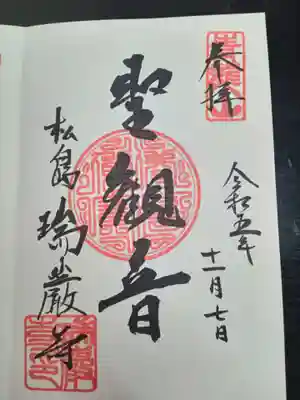 奉拝
令和五年
十一月七日
聖観音
松島 瑞巌寺